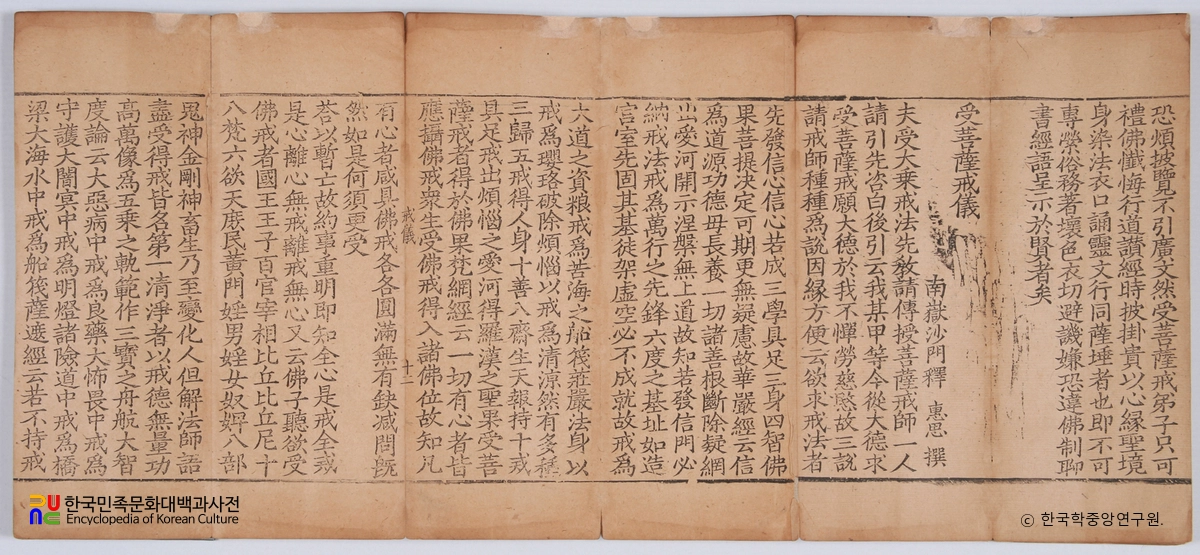 恐煩披覽不引廣文然受菩薩戒弟子只可
禮佛懺悔行道讃經時披掛貴以心緣聖境
身染法衣口誦靈文行同薩埵者也即不可
專縈俗務著壞色衣切避譏嫌恐違佛制聊
書經語呈示於賢者矣
受菩薩戒儀
南嶽沙門釋 惠思 撰
夫受大乗戒法先敎請傳授菩薩戒師一人
請引先咨白後引云我某甲等今從大德求
受菩薩戒願大德於我不憚勞慈愍故三說
請戒師種種爲說因緣方便云欲求戒法者
先發信心信心若成三學具足三身四智佛
果菩提決定可期更無疑慮故華嚴經云信
爲道源功德母長養一切諸善根斷除疑網
出愛河開示涅槃無上道故知若發信門必
納戒法戒爲萬行之先鋒六度之基址如造
宮室先固其基徒架虛空必不成就故戒爲
六道之資粮戒爲苦海之船筏莊嚴法身以
戒爲瓔珞破除煩惱以戒爲清涼然有多種
三歸五戒得人身十善八齋生天報持十戒
具足戒出煩惱之愛河得羅漢之聖果受菩
薩戒者得於佛果梵網經云一切有心者皆
應攝佛戒衆生受佛戒得入諸佛位故知凡
戒儀 十二
有心者咸具佛戒各各圓滿無有缺減問旣
然如是何須更受
荅以暫亡故約事重明即知全心是戒全戒
是心離心無戒離戒無心又云佛子聽欲受
佛戒者國王王子百官宰相比丘比丘尼十
八梵六欲天庶民黃門婬男婬女奴婢八部
鬼神金剛神畜生乃至變化人但解法師語
盡受得戒皆名第一清淨者以戒德無量功
高萬像爲五乗之軌範作三寶之舟航大智
度論云大惡病中戒爲良藥大怖畏中戒爲
守護大闇冥中戒爲明燈諸險道中戒爲橋
梁大海水中戒爲船筏薩遮經云若不持戒
한국민족문화대백과사전
Encyclopedia of Korean Culture
ⓒ 한국학중앙연구원.